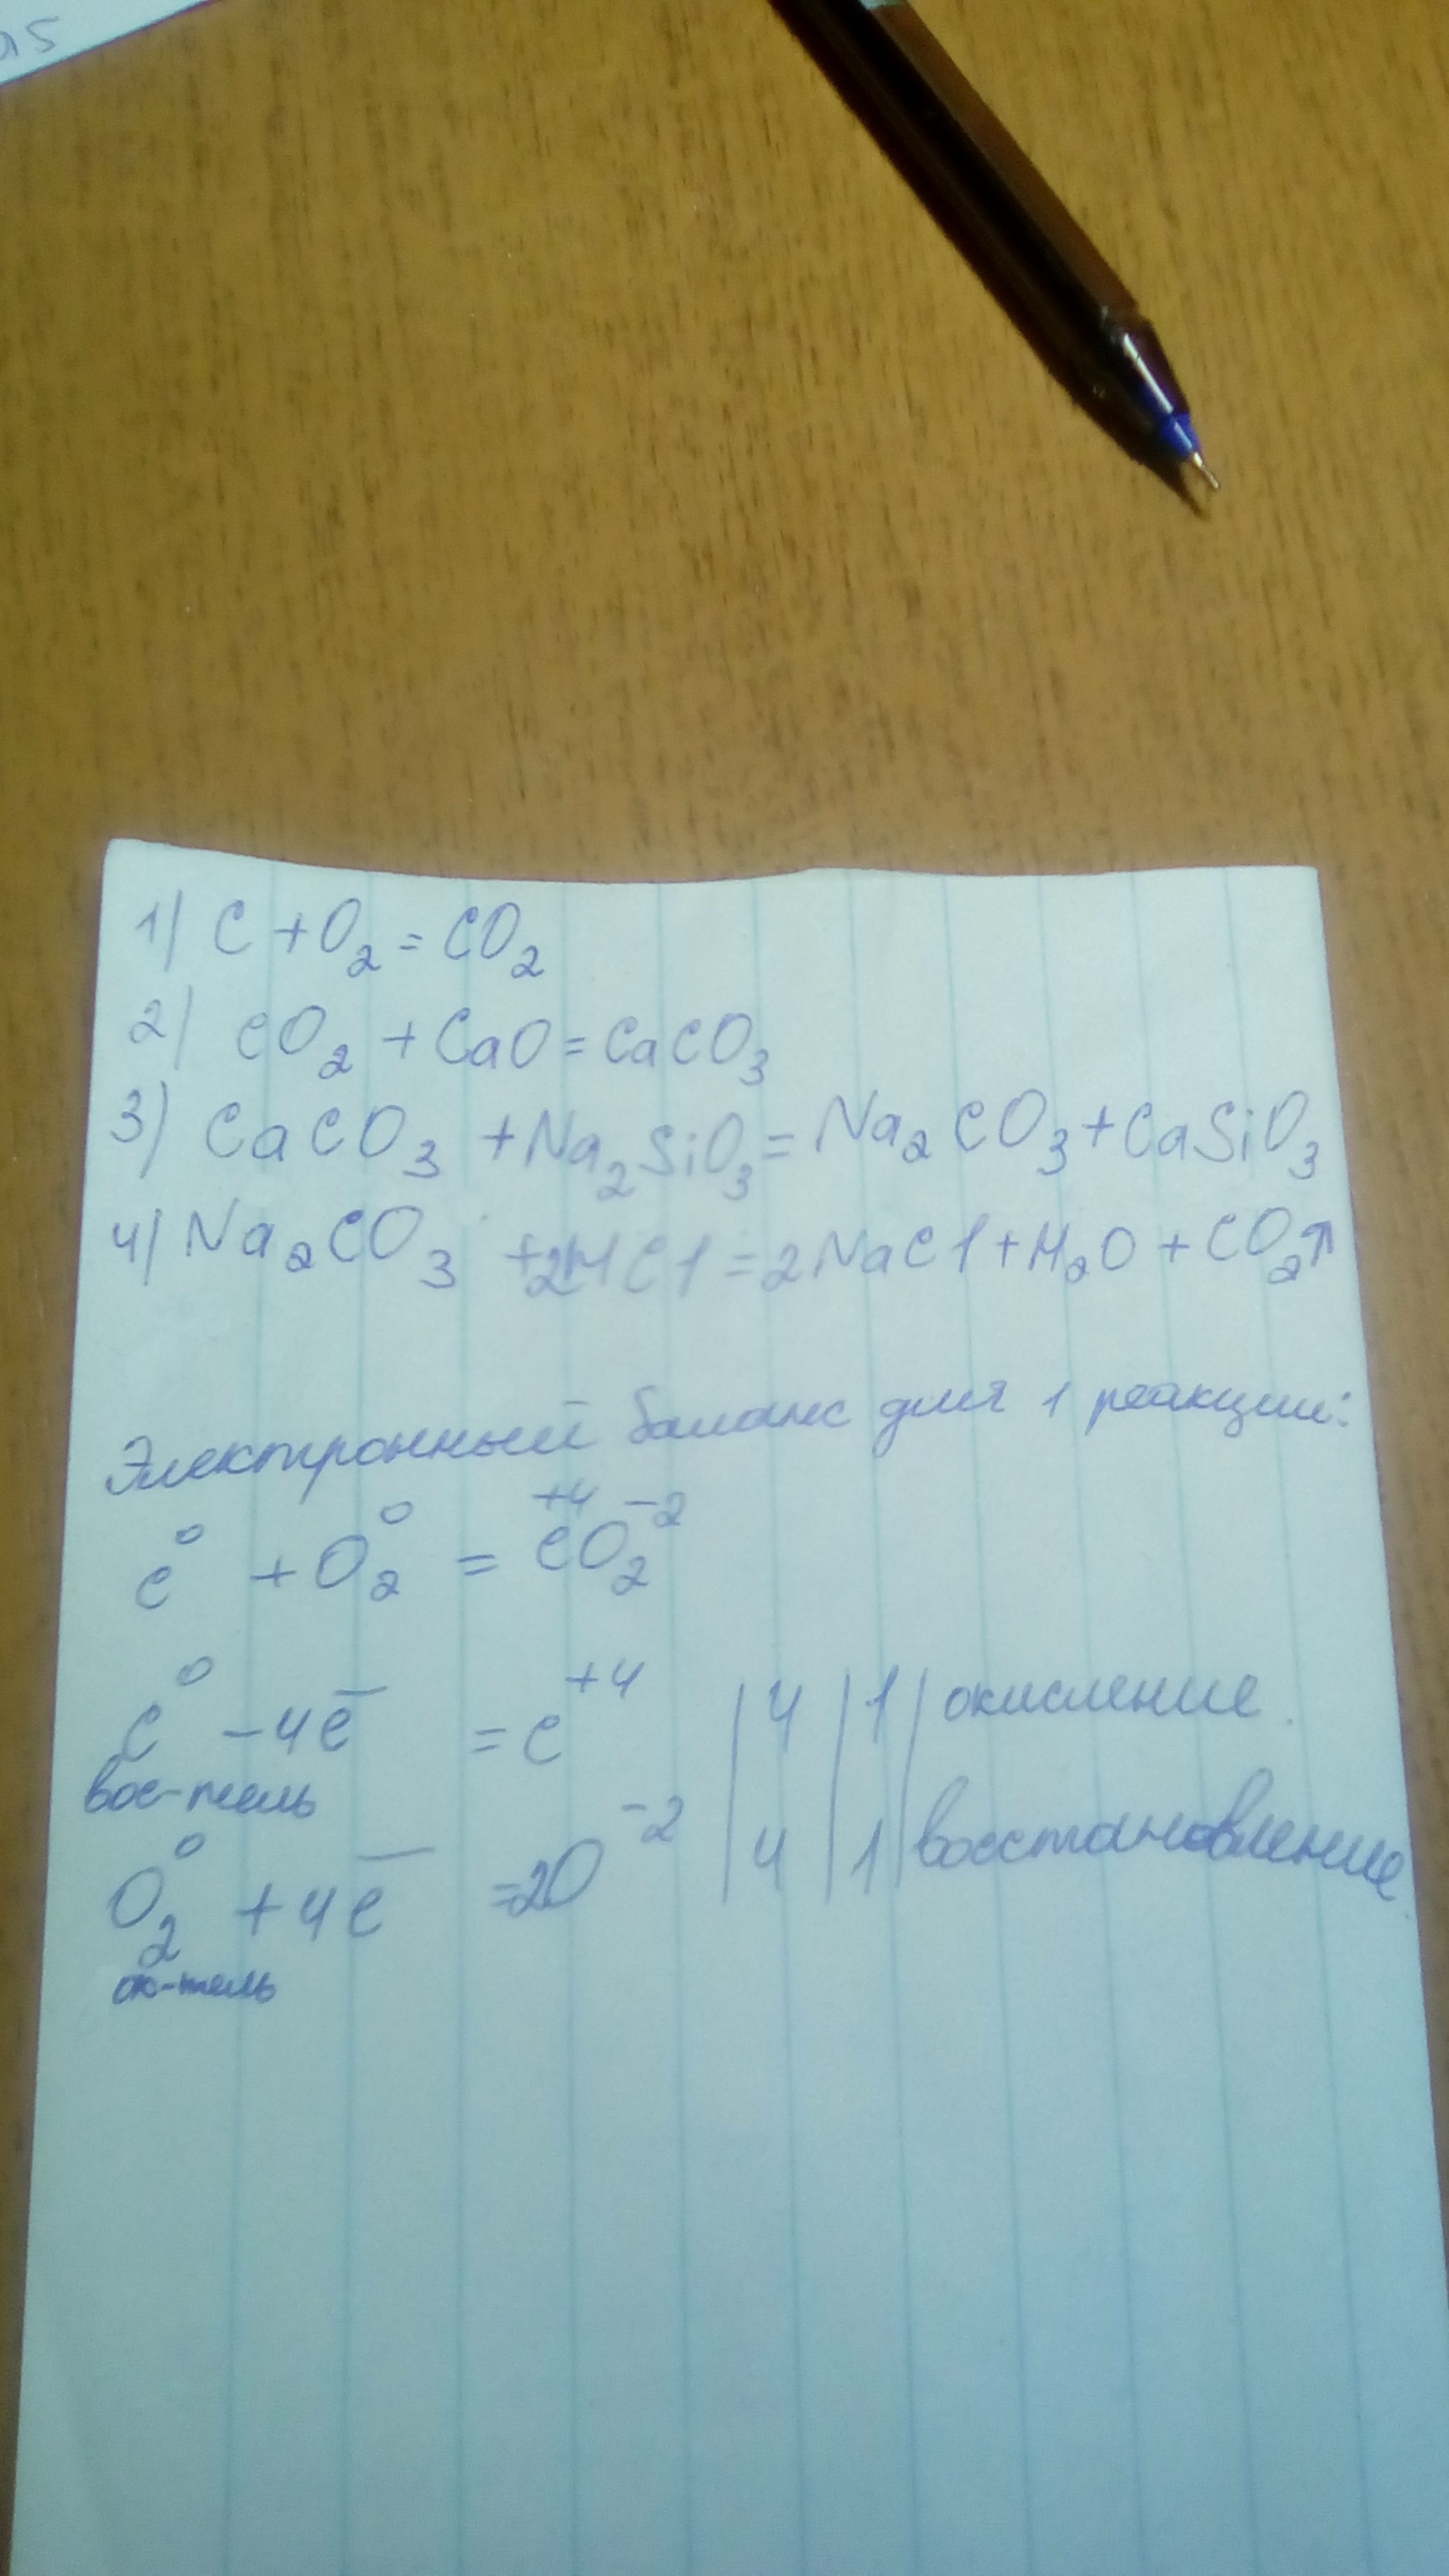 15
1) C + O₂ = CO₂
2) CO₂ + CaO = CaCO₃
3) CaCO₃ + Na₂SiO₃ = Na₂CO₃ + CaSiO₃
4) Na₂CO₃ + 2HCl = 2NaCl + H₂O + CO₂↑
Электронный баланс для 1 реакции:
C⁰ + O₂⁰ = C⁺⁴O₂⁻²
C⁰ – 4e̅ = C⁺⁴ | 4 | 1 | окисление
вос-тель
O₂⁰ + 4e̅ = 2O⁻² | 4 | 1 | восстановление
ок-тель